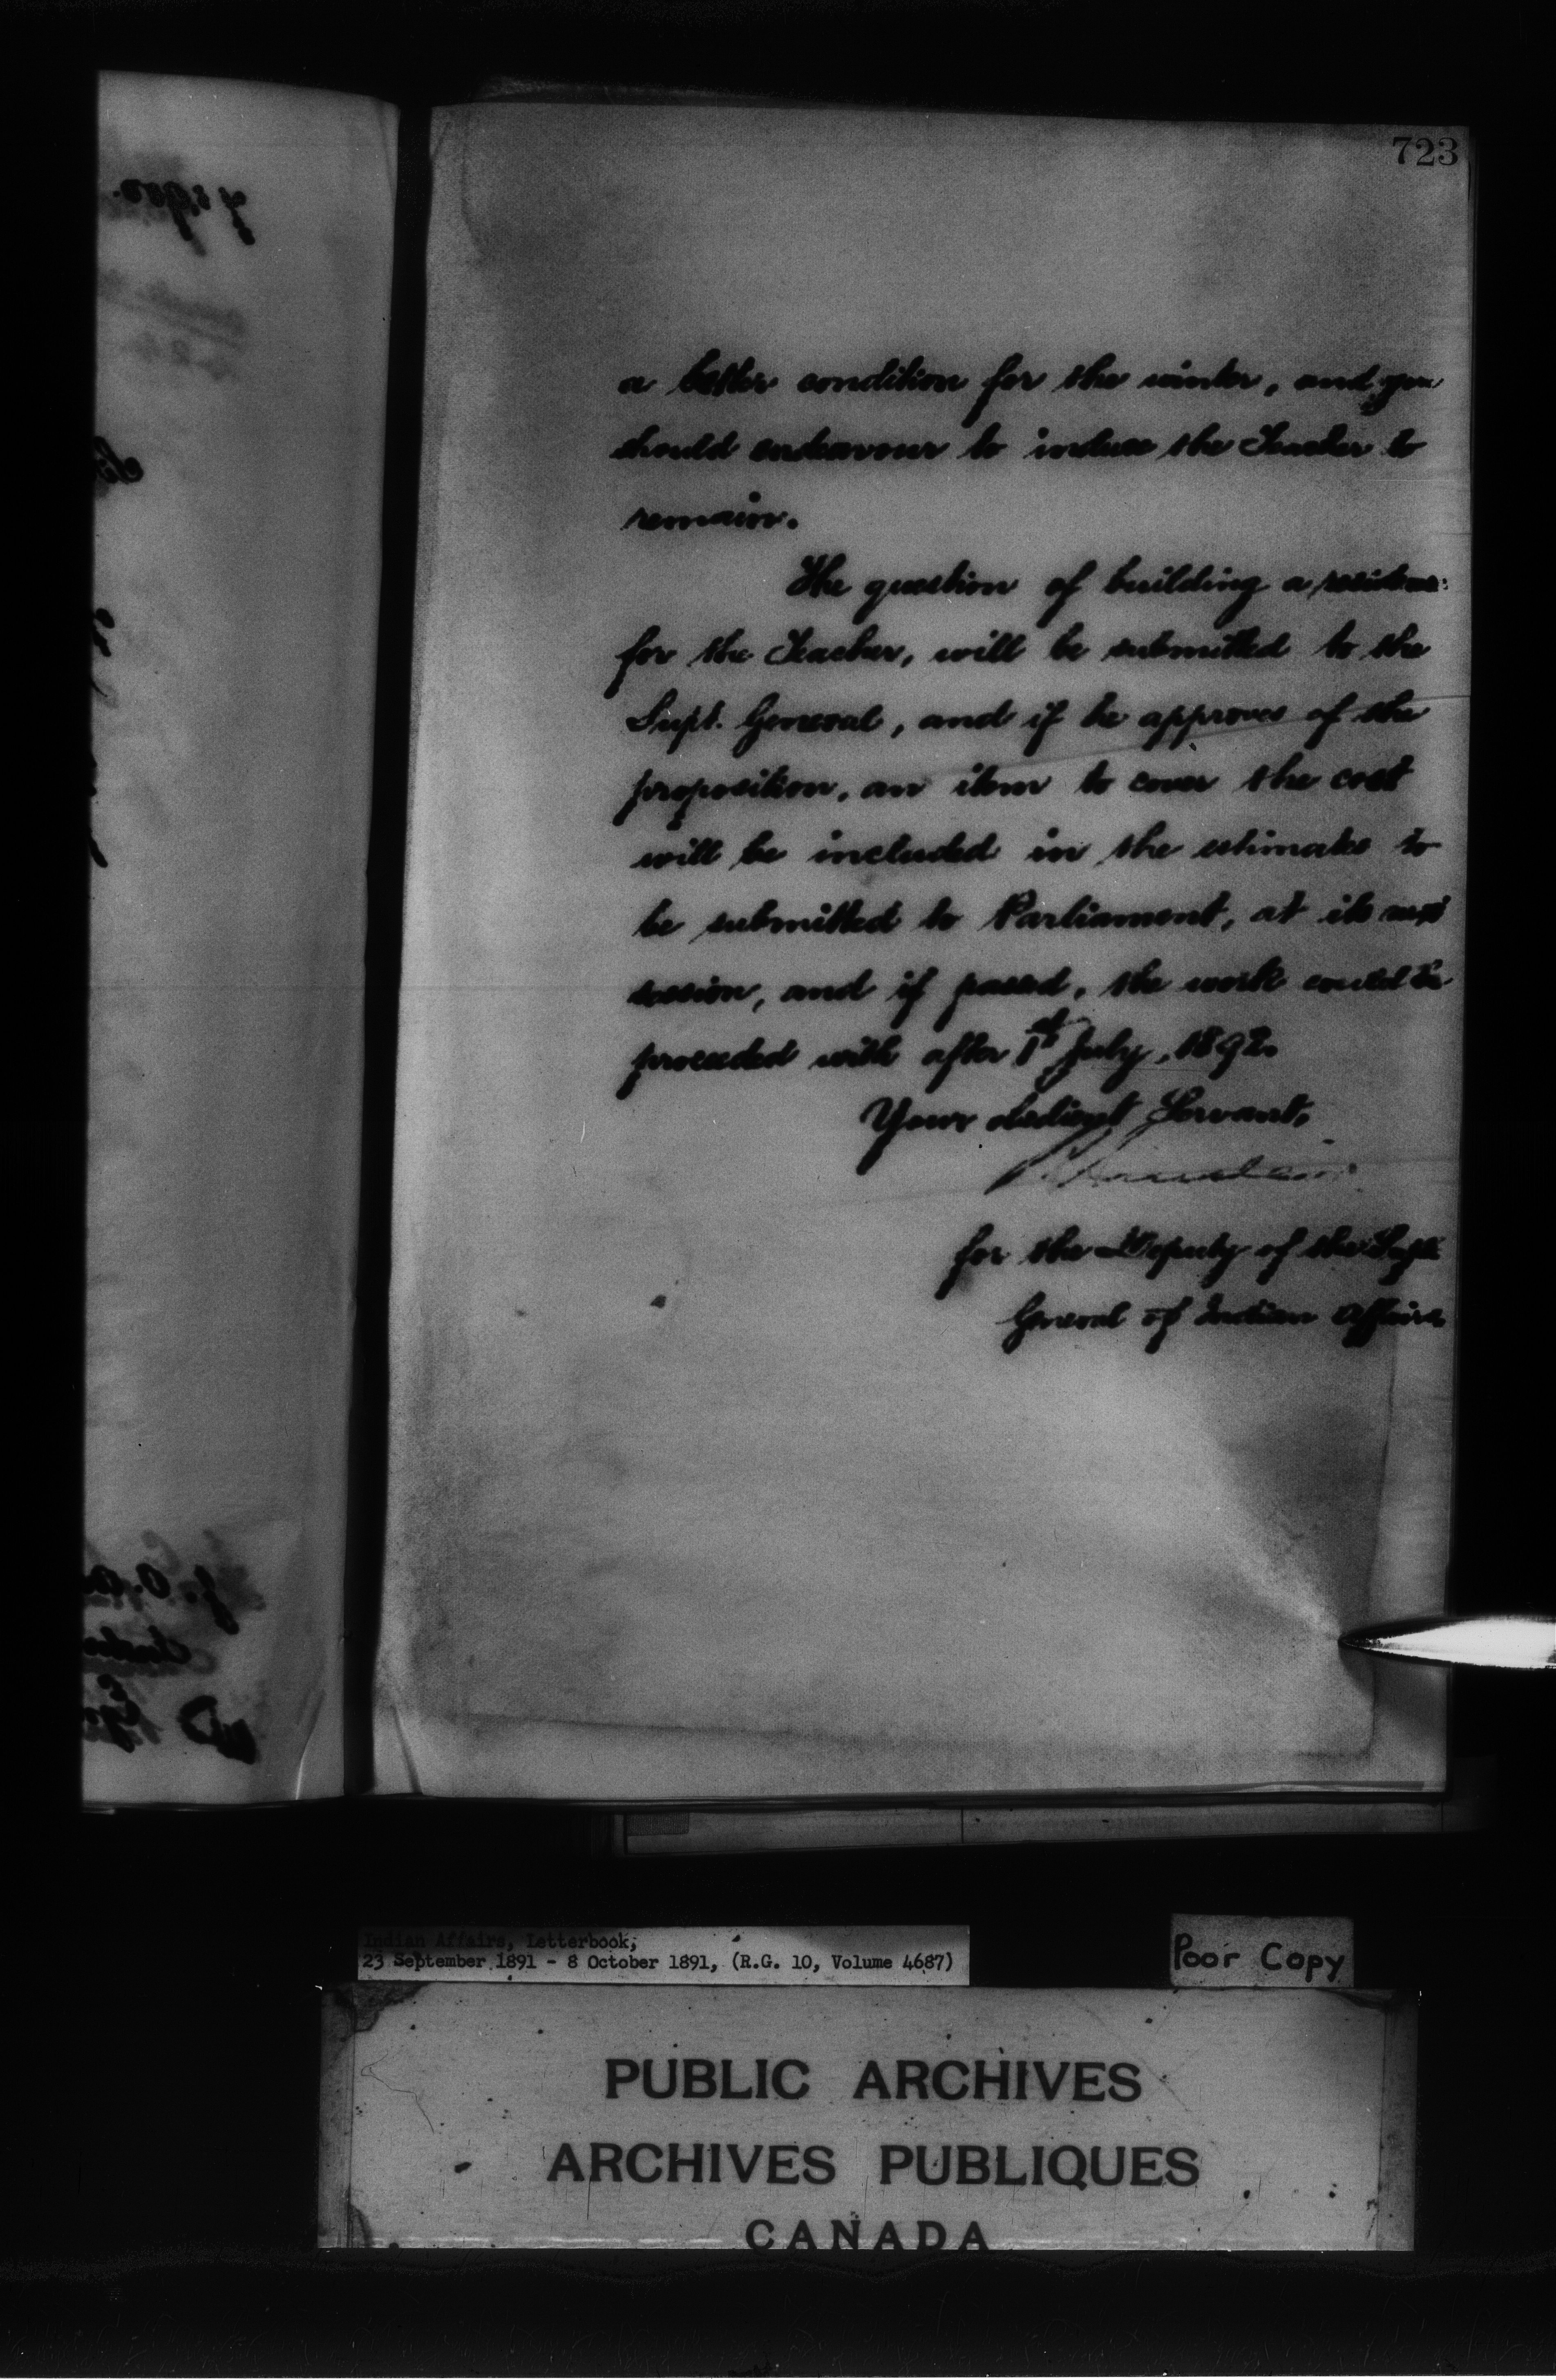 723
a better condition for the winter, and you
should endeavour to induce the Teacher to
remain.
The question of building a residence
for the Teacher, will be submitted to the
Supt. General, and if he approves of the
proposition, an item to cover the cost
will be included in the estimates to
be submitted to Parliament, at its next
session, and if passed, the work could be
proceeded with after 1st July, 1892.
Your obedient Servant,
for the Deputy of the Supt.
General of Indian Affairs
Indian Affairs, Letterbook,
23 September 1891 - 8 October 1891, (R.G. 10, Volume 4687)
Poor Copy
PUBLIC ARCHIVES
ARCHIVES PUBLIQUES
CANADA